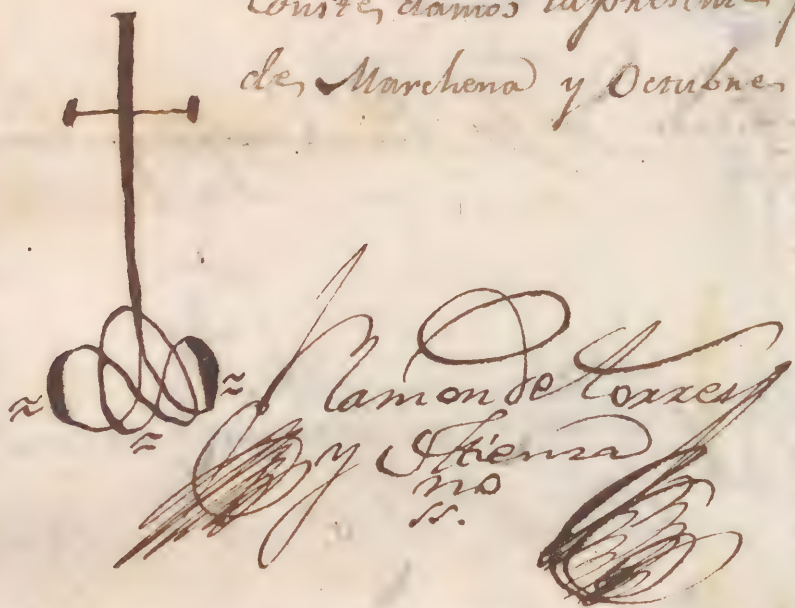 Conste, damos la presente
de Marchena y Octubre
Ramon de Torres
y Atienza
no
ss.